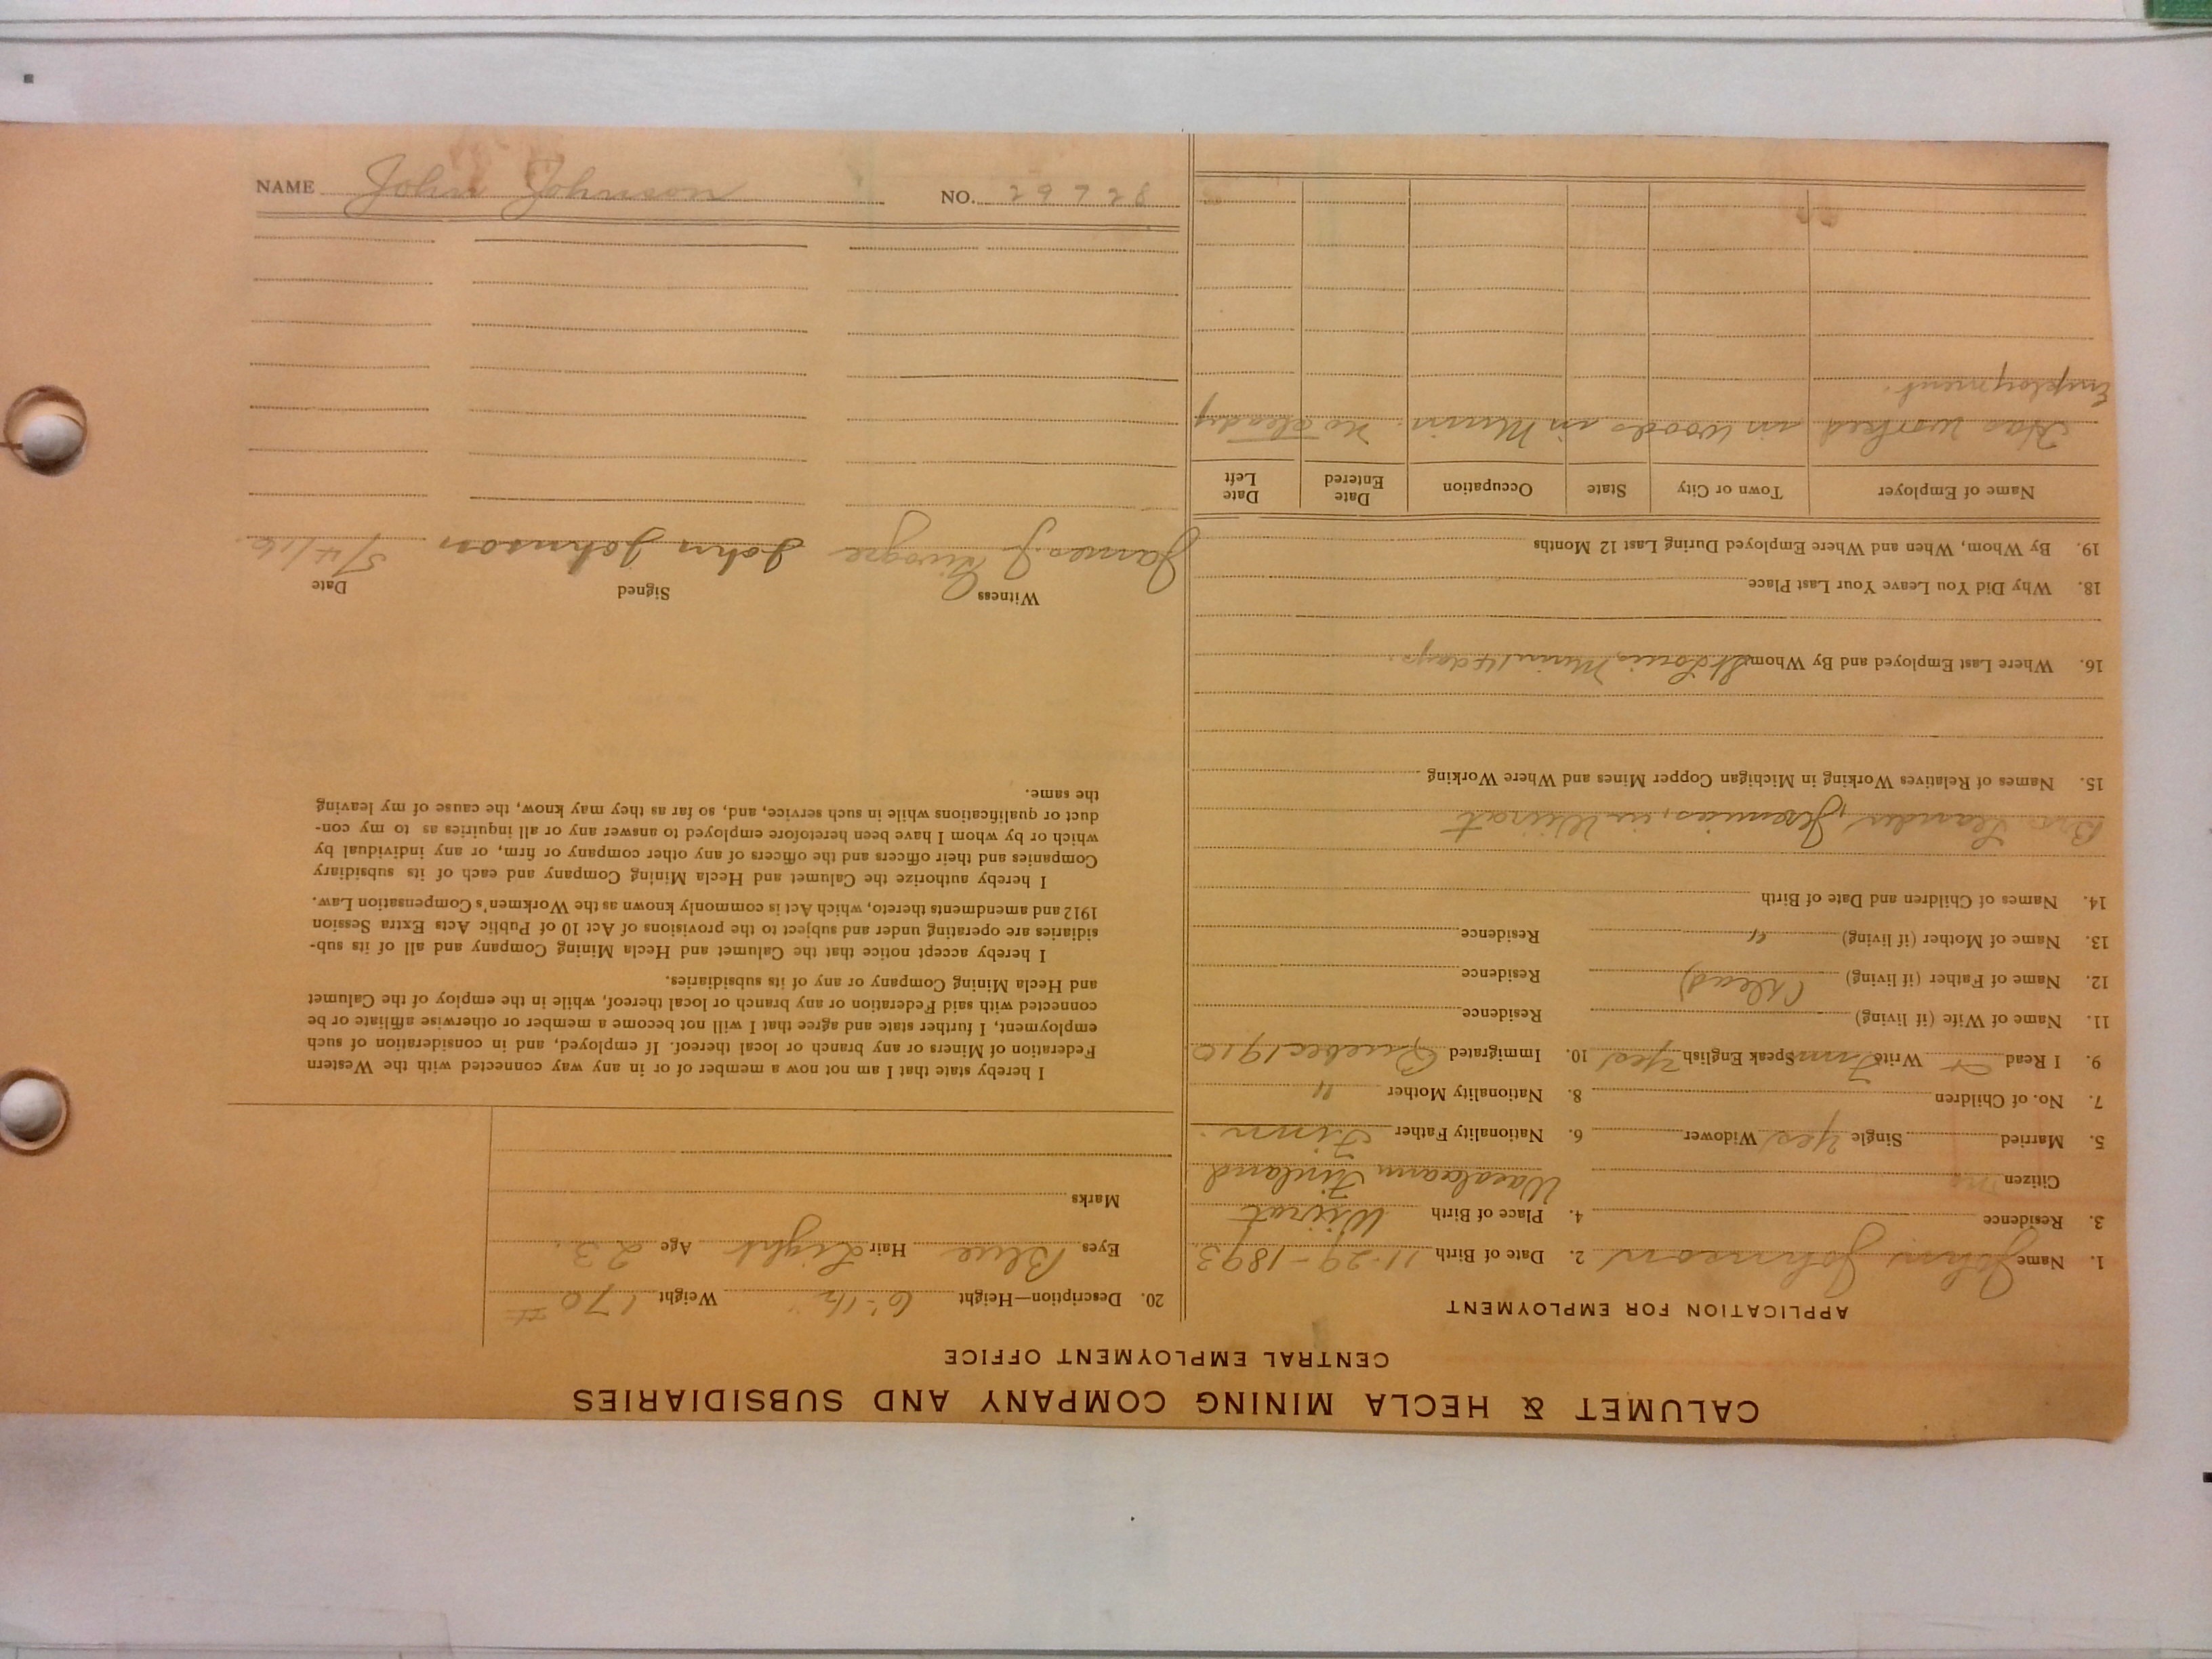 CALUMET & HECLA MINING COMPANY AND SUBSIDIARIES
CENTRAL EMPLOYMENT OFFICE
APPLICATION FOR EMPLOYMENT
1. Name John Johnson 2. Date of Birth 11-29-1893
3. Residence 4. Place of Birth Wiirat
Citizen no Finland
5. Married Single Yes Widower 6. Nationality Father Finn.
7. No. of Children 8. Nationality Mother "
9. I Read & Write Finn Speak English Yes 10. Immigrated Quebec 1910
11. Name of Wife (if living) Residence
12. Name of Father (if living) (Dead) Residence
13. Name of Mother (if living) " Residence
14. Names of Children and Date of Birth
Bro. Leander, Jeremias, in Wiirat
15. Names of Relatives Working in Michigan Copper Mines and Where Working
16. Where Last Employed and By Whom St Louis, Minn 14 days.
18. Why Did You Leave Your Last Place
19. By Whom, When and Where Employed During Last 12 Months
Name of Employer Town or City State Occupation Date Entered Date Left
Has worked in woods in Minn. no steady
Employment.
20. Description—Height 6' 1½" Weight 170 #
Eyes Blue Hair Light Age 23.
Marks
I hereby state that I am not now a member of or in any way connected with the Western
Federation of Miners or any branch or local thereof. If employed, and in consideration of such
employment, I further state and agree that I will not become a member or otherwise affiliate or be
connected with said Federation or any branch or local thereof, while in the employ of the Calumet
and Hecla Mining Company or any of its subsidiaries.
I hereby accept notice that the Calumet and Hecla Mining Company and all of its sub-
sidiaries are operating under and subject to the provisions of Act 10 of Public Acts Extra Session
1912 and amendments thereto, which Act is commonly known as the Workmen's Compensation Law.
I hereby authorize the Calumet and Hecla Mining Company and each of its subsidiary
Companies and their officers and the officers of any other company or firm, or any individual by
which or by whom I have been heretofore employed to answer any or all inquiries as to my con-
duct or qualifications while in such service, and, so far as they may know, the cause of my leaving
the same.
Witness Signed Date
James J. John Johnson 5/4/16.
NAME John Johnson NO. 29728